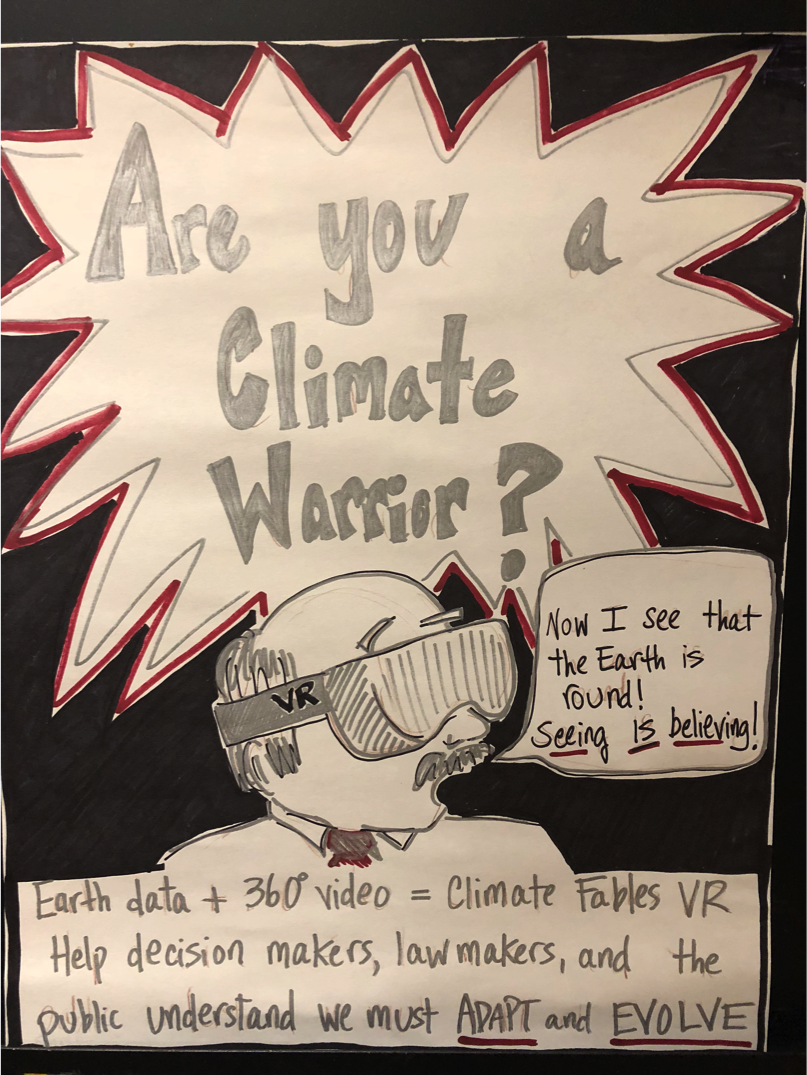 Are you a
Climate
Warrior?
VR
Now I see that
the Earth is
round!
Seeing IS believing!
Earth data + 360° video = Climate Fables VR
Help decision makers, lawmakers, and the
public understand we must ADAPT and EVOLVE